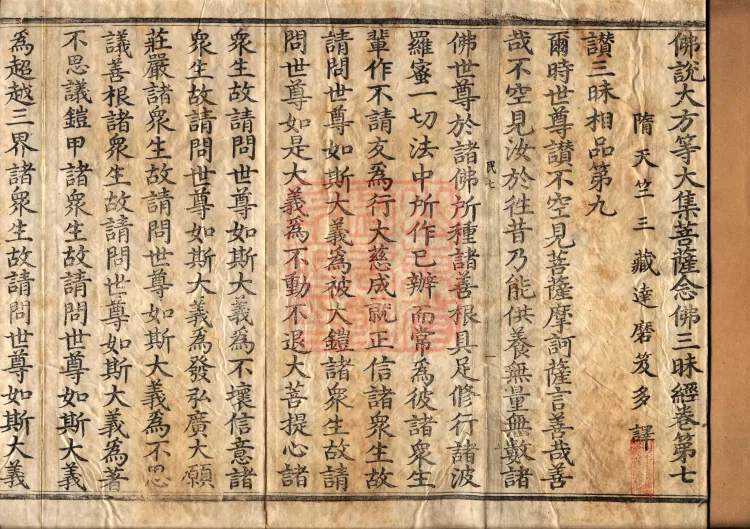 佛說大方等大集菩薩念佛三昧經卷第七
隋天竺三藏達磨笈多譯
讃三昧相品第九
爾時世尊讃不空見菩薩摩訶薩言善哉善
哉不空見汝於往昔乃能供養無量無數諸
民七
佛世尊於諸佛所種諸善根具足修行諸波
羅蜜一切法中所作已辦而常為彼諸衆生
輩作不請友為行大慈成就正信諸衆生故
請問世尊如斯大義為被大鎧諸衆生故請
問世尊如是大義為不動不退大菩提心諸
衆生故請問世尊如斯大義為不壞信意諸
衆生故請問世尊如斯大義為發弘廣大願
莊嚴諸衆生故請問世尊如斯大義為不思
議善根諸衆生故請問世尊如斯大義為著
不思議鎧甲諸衆生故請問世尊如斯大義
為超越三界諸衆生故請問世尊如斯大義